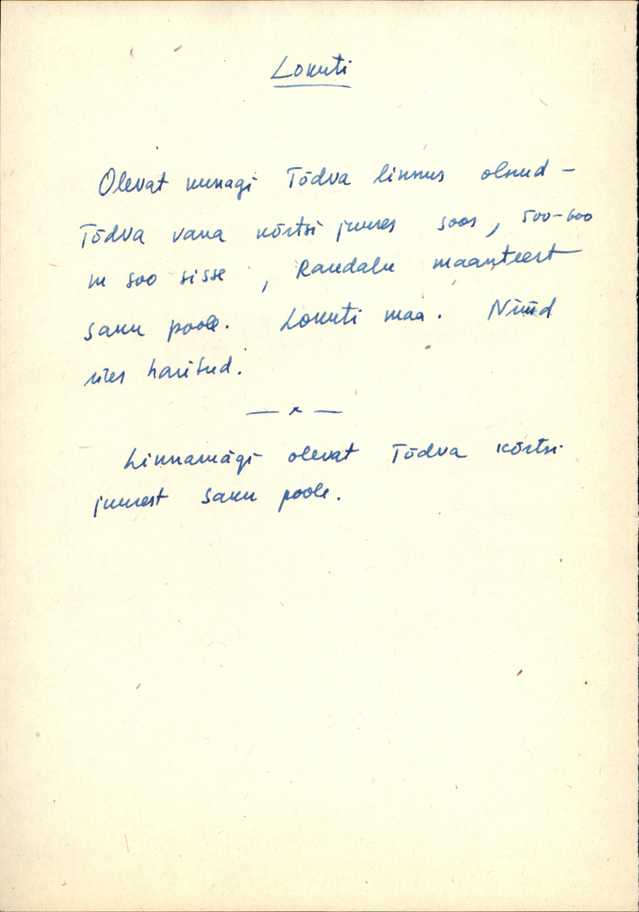 Lokuti
Olevat kunagi Tõdva linnus olnud –
Tõdva vana kõrtsi juures soos, 500-600
m soo sisse, Raudalu maanteest
Saku poole. Lokuti maa. Nüüd
üles haritud.
— x —
Linnamägi olevat Tõdva kõrtsi
juurest Saku poole.